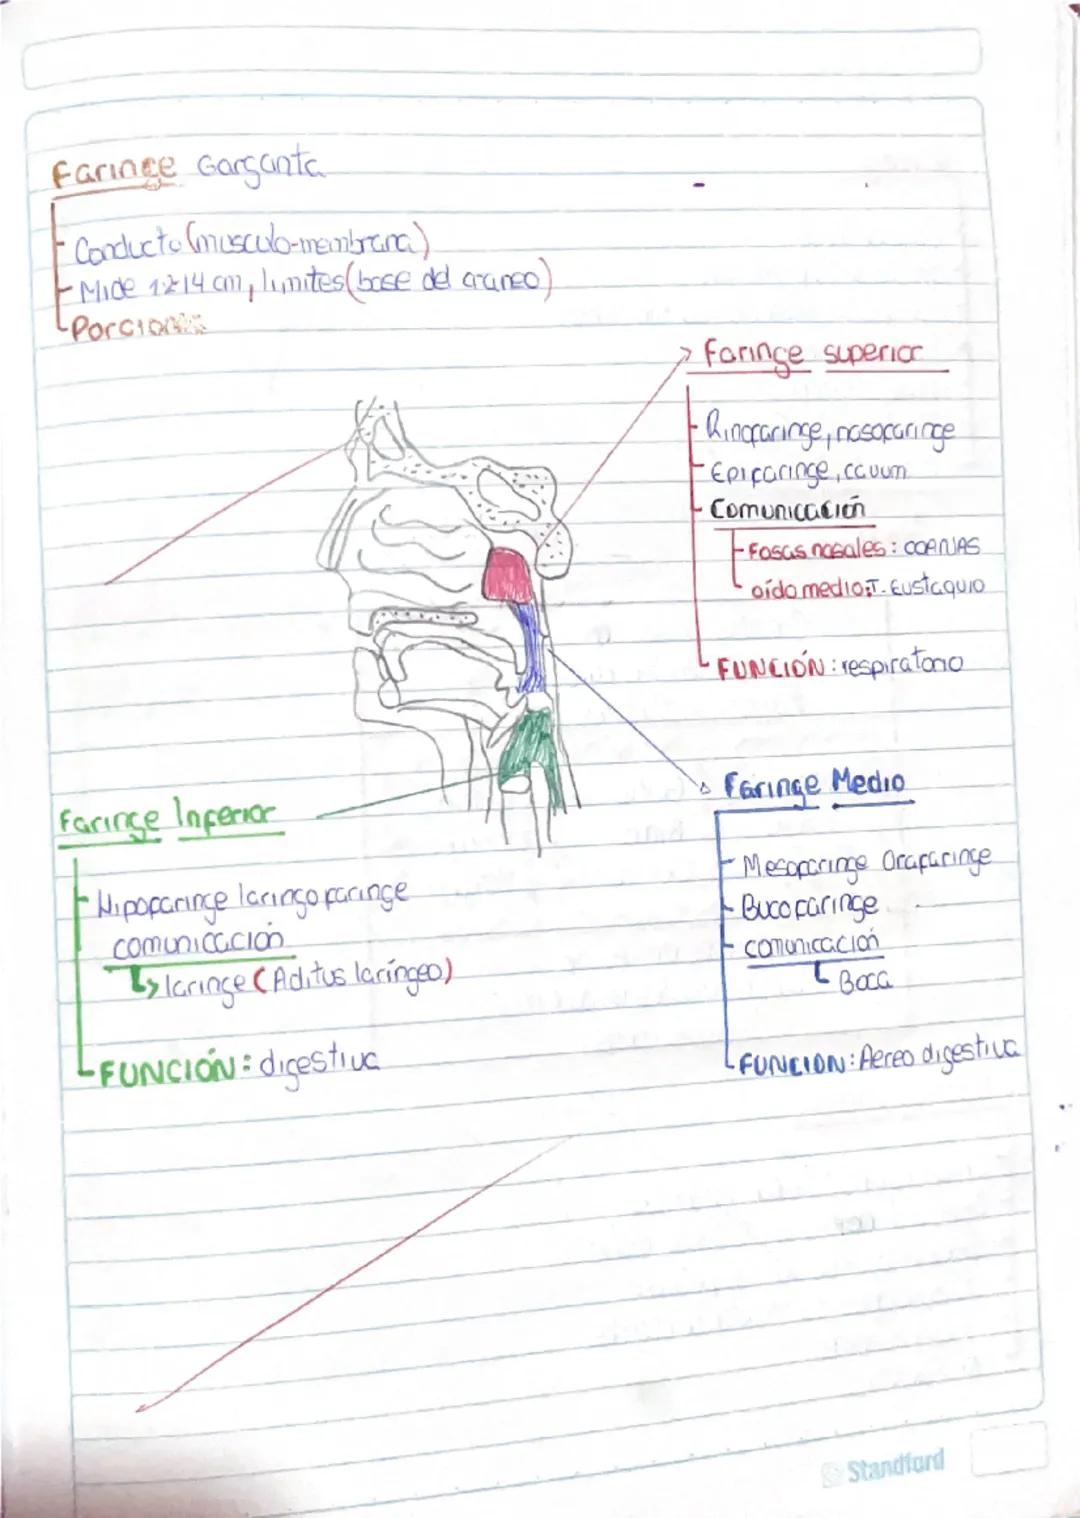 Faringe Garganta
Conducto (musculo-membrana)
Mide 12 14 cm, limites (base del craneo)
Porciones
Faringe superior
Rinofaringe, nasofaringe
Epifaringe, cavum
Comunicación
Fosas nasales: COANAS
oído medio: T. Eustaquio
FUNCIÓN: respiratorio
Faringe Inferior
Hipofaringe laringofaringe
comunicación
laringe (Aditus laríngeo)
FUNCIÓN: digestiva
Faringe Medio
Mesofaringe Orafaringe
Bucofaringe
comunicación
Boca
FUNCION: Aereo digestiva
Standford